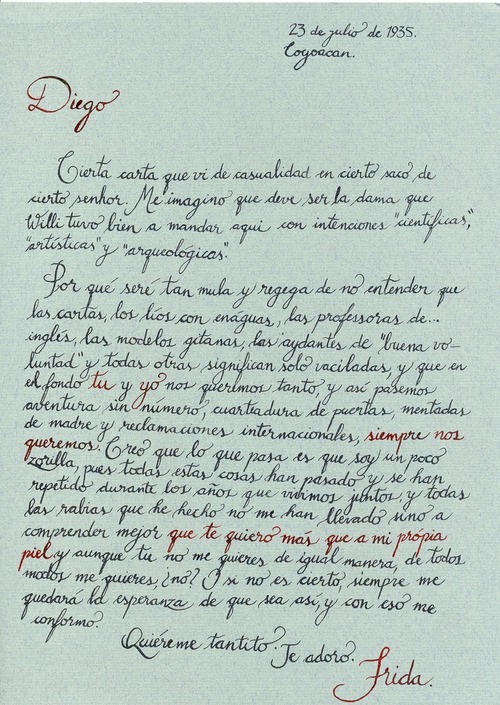 23 de julio de 1935.
Coyoacan.
Diego
Cierta carta que vi de casualidad en cierto saco de
cierto senhor. Me imagino que deve ser la dama que
Willi tuvo bien a mandar aqui con intenciones "científicas",
"artísticas" y "arqueológicas".
Por qué seré tan mula y regega de no entender que
las cartas, los líos con enaguas, las professoras de...
inglés, las modelos gitanas, las aydantes de "buena vo-
luntad" y todas otras significan solo vaciladas, y que en
el fondo tu y yo nos queremos tanto, y así pasemos
aventura sin número, cuartiadura de puertas, mentadas
de madre y reclamaciones internacionales, siempre nos
queremos. Creo que lo que pasa es que soy un poco
zorilla, pues todas estas cosas han pasado y se han
repetido durante los años que vivimos juntos, y todas
las rabias que he hecho no me han llevado sino a
comprender mejor que te quiero mas que a mi própia
piel, y aunque tu no me quieres de igual manera, de todos
modos me quieres, ¿no? O si no es cierto, siempre me
quedará la esperanza de que sea así, y con eso me
conformo.
Quiéreme tantito.
Te adoro.
Frida.